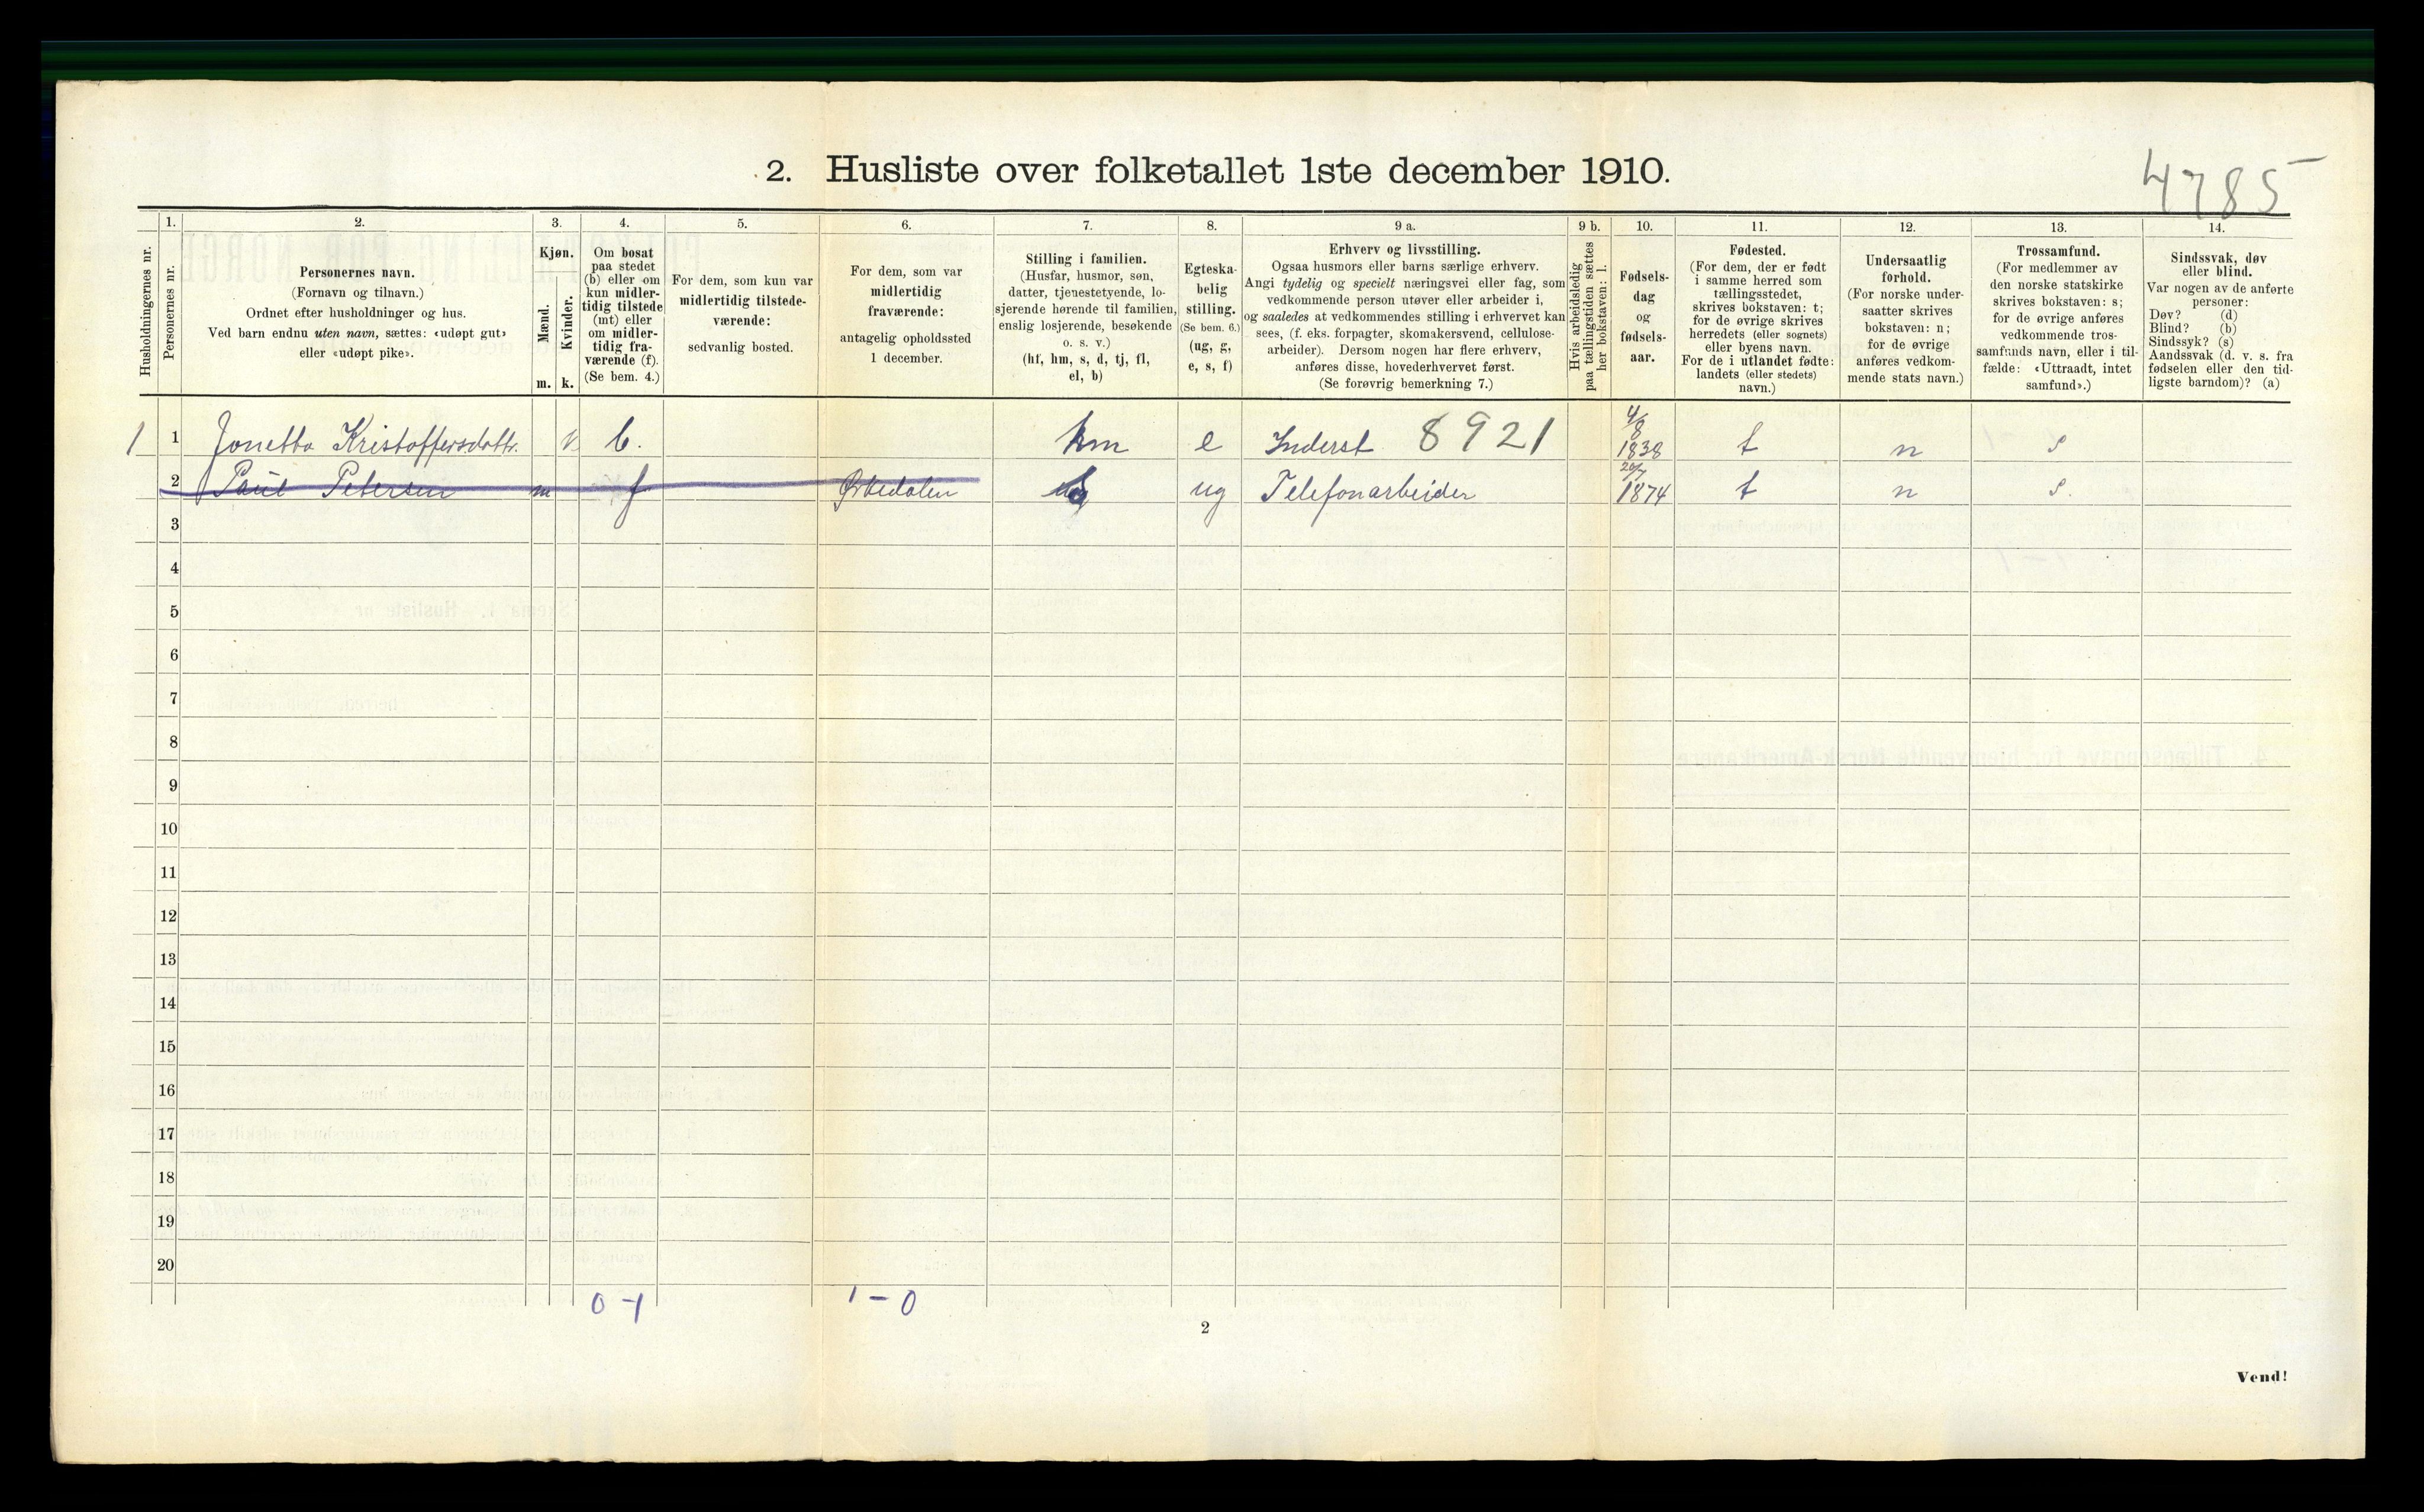 2. Husliste over folketallet 1ste december 1910.
4785
Husholdningernes nr.
1.
Personernes nr.
2.
Personernes navn.
(Fornavn og tilnavn.)
Ordnet efter husholdninger og hus.
Ved barn endnu uten navn, sættes: «udøpt gut»
eller «udøpt pike».
3.
Kjøn.
Mænd.
Kvinder.
m. k.
4.
Om bosat
paa stedet
(b) eller om
kun midler-
tidig tilstede
(mt) eller
om midler-
tidig fra-
værende (f).
(Se bem. 4.)
5.
For dem, som kun var
midlertidig tilstede-
værende:
sedvanlig bosted.
6.
For dem, som var
midlertidig
fraværende:
antagelig opholdssted
1 december.
7.
Stilling i familien.
(Husfar, husmor, søn,
datter, tjenestetyende, lo-
sjerende hørende til familien,
enslig losjerende, besøkende
o. s. v.)
(hf, hm, s, d, tj, fl,
el, b)
8.
Egteska-
belig
stilling.
(Se bem. 6.)
(ug, g,
e, s, f)
9 a.
Erhverv og livsstilling.
Ogsaa husmors eller barns særlige erhverv.
Angi tydelig og specielt næringsvei eller fag, som
vedkommende person utøver eller arbeider i,
og saaledes at vedkommendes stilling i erhvervet kan
sees, (f. eks. forpagter, skomakersvend, cellulose-
arbeider). Dersom nogen har flere erhverv,
anføres disse, hovederhvervet først.
(Se forøvrig bemerkning 7.)
9 b.
Hvis arbeidsledig
paa tællingstiden sættes
her bokstaven: l.
10.
Fødsels-
dag
og
fødsels-
aar.
11.
Fødested.
(For dem, der er født
i samme herred som
tællingsstedet,
skrives bokstaven: t;
for de øvrige skrives
herredets (eller sognets)
eller byens navn.
For de i utlandet fødte:
landets (eller stedets)
navn.)
12.
Undersaatlig
forhold.
(For norske under-
saatter skrives
bokstaven: n;
for de øvrige
anføres vedkom-
mende stats navn.)
13.
Trossamfund.
(For medlemmer av
den norske statskirke
skrives bokstaven: s;
for de øvrige anføres
vedkommende tros-
samfunds navn, eller i til-
fælde: «Uttraadt, intet
samfund».)
14.
Sindssvak, døv
eller blind.
Var nogen av de anførte
personer:
Døv? (d)
Blind? (b)
Sindssyk? (s)
Aandssvak (d. v. s. fra
fødselen eller den tid-
ligste barndom)? (a)
1 1 Jonetta Kristoffersdottr. k b. hm e Inderst 8921 4/8 1838 t n s
2 Paul Petersen m f Ørkedalen ug Telefonarbeider 20/7 1874 t n s.
3
4
5
6
7
8
9
10
11
12
13
14
15
16
17
18
19
20
0-1 1-0
2
Vend!